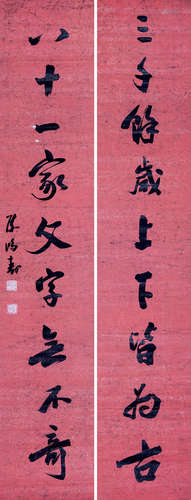 三千餘歲上下皆為古
八十一家文字無不奇
陳鴻壽